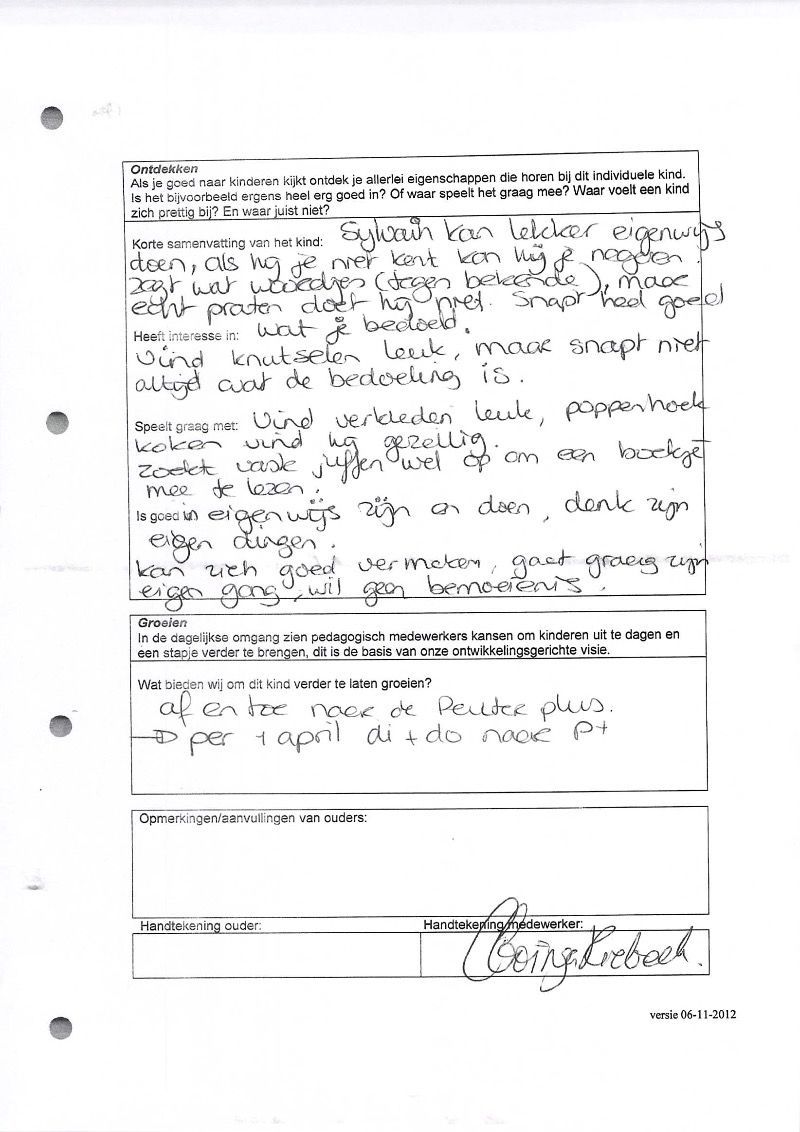 Ontdekken
Als je goed naar kinderen kijkt ontdek je allerlei eigenschappen die horen bij dit individuele kind.
Is het bijvoorbeeld ergens heel erg goed in? Of waar speelt het graag mee? Waar voelt een kind
zich prettig bij? En waar juist niet?
Korte samenvatting van het kind: Sylvain kan lekker eigenwijs
doen, als hij je niet kent kan hij je negeren.
zegt wat woordjes (tegen bekende), maar
echt praten doet hij niet. Snapt heel goed
Heeft interesse in: wat je bedoeld.
Vind knutselen leuk, maar snapt niet
altijd wat de bedoeling is.
Speelt graag met: Vind verkleden leuk, poppenhoek
koken vind hij gezellig.
zoekt vaste juffen wel op om een boekje
mee te lezen.
Is goed in eigenwijs zijn en doen, denk zijn
eigen dingen.
kan zich goed vermaken, gaat graag zijn
eigen gang, wil geen bemoeienis.
Groeien
In de dagelijkse omgang zien pedagogisch medewerkers kansen om kinderen uit te dagen en
een stapje verder te brengen, dit is de basis van onze ontwikkelingsgerichte visie.
Wat bieden wij om dit kind verder te laten groeien?
af en toe naar de Peuter plus.
→ per 1 april di + do naar P+
Opmerkingen/aanvullingen van ouders:
Handtekening ouder: Handtekening medewerker:
versie 06-11-2012